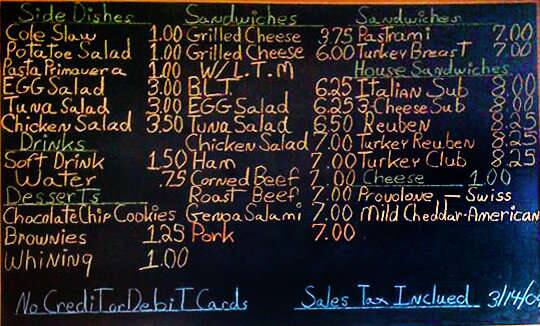 Side Dishes
Cole Slaw 1.00
Potatoe Salad 1.00
Pasta Primavera 1.00
EGG Salad 3.00
Tuna Salad 3.00
Chicken Salad 3.50
Drinks
Soft Drink 1.50
Water .75
Desserts
Chocolate Chip Cookies
Brownies 1.25
Whining 1.00
Sandwiches
Grilled Cheese 3.75
Grilled Cheese 6.00
W/L.T.M
BLT 6.25
EGG Salad 6.25
Tuna Salad 6.50
Chicken Salad 7.00
Ham 7.00
Corned Beef 7.00
Roast Beef 7.00
Genoa Salami 7.00
Pork 7.00
Sandwiches
Pastrami 7.00
Turkey Breast 7.00
House Sandwiches
Italian Sub 8.00
3-Cheese Sub 8.00
Reuben 8.25
Turkey Reuben 8.25
Turkey Club 8.25
Cheese 1.00
Provolone — Swiss
Mild Cheddar-American
No Credit or Debit Cards
Sales Tax Inclued